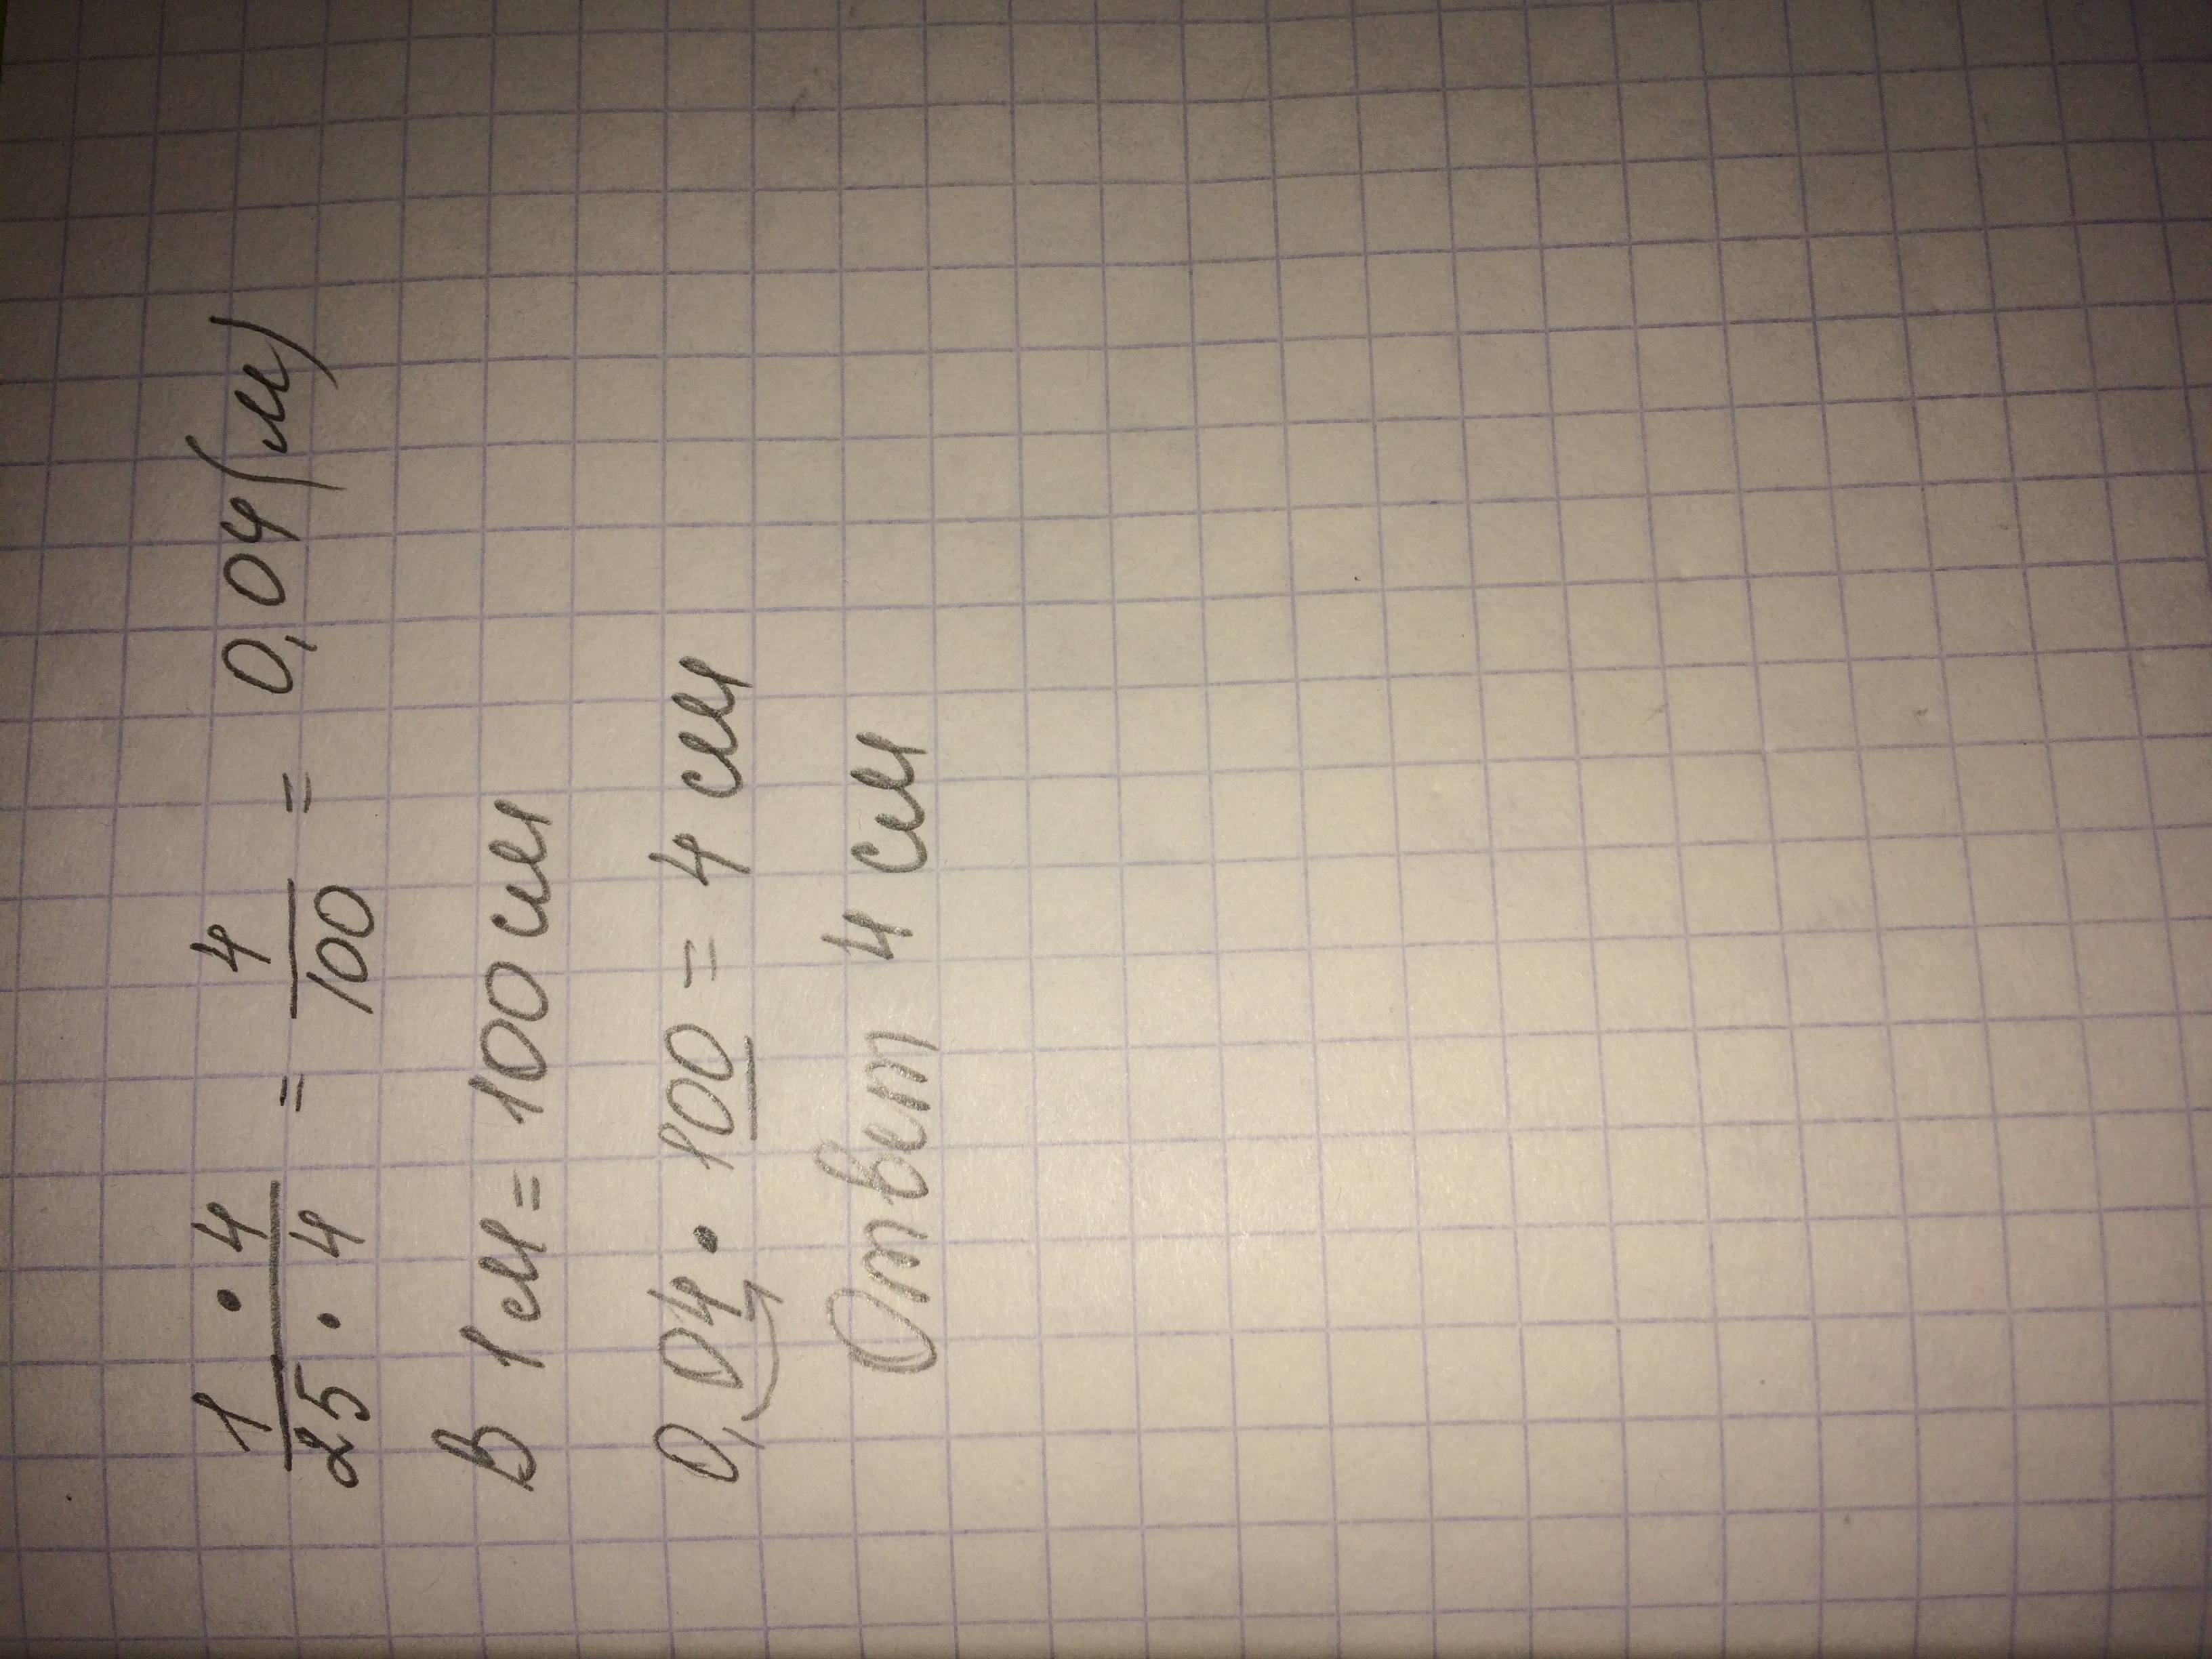 1 · 4 / 25 · 4 = 4/100 = 0,04 (м)
В 1 м = 100 см
0,04 · 100 = 4 см
Ответ 4 см